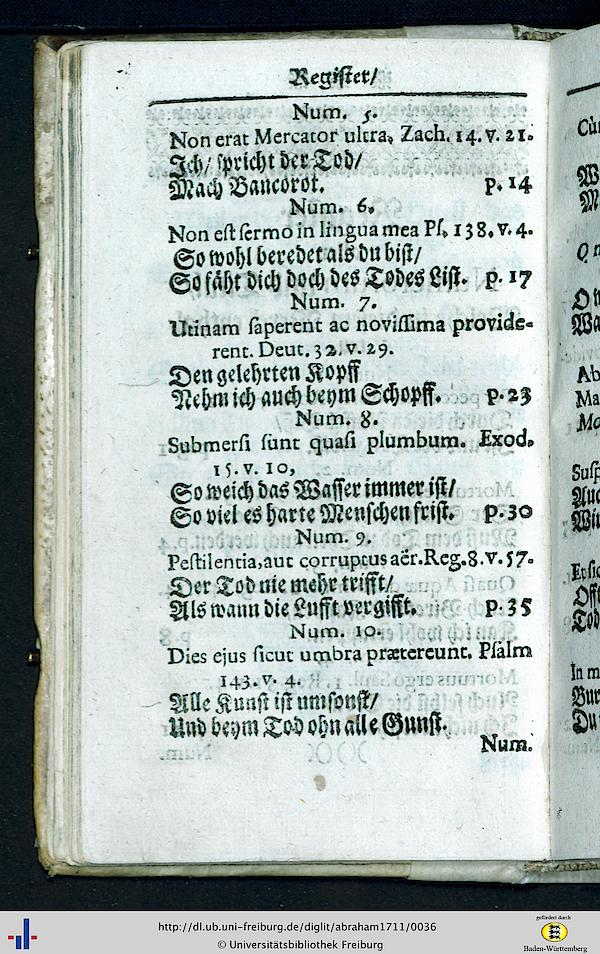 Regiſter/
Num. 5.
Non erat Mercator ultra, Zach. 14. v. 21.
Ich/ ſpricht der Tod/
Mach Bancorot. p. 14
Num. 6.
Non eſt ſermo in lingua mea Pſ. 138. v. 4.
So wohl beredet als du biſt/
So fäht dich doch des Todes Liſt. p. 17
Num. 7.
Utinam ſaperent ac noviſſima provide-
rent. Deut. 32. v. 29.
Den gelehrten Kopff
Nehm ich auch beym Schopff. p. 23
Num. 8.
Submerſi ſunt quaſi plumbum. Exod.
15. v. 10,
So weich das Waſſer immer iſt/
So viel es harte Menſchen friſt. p. 30
Num. 9.
Peſtilentia, aut corruptus aër. Reg. 8. v. 57.
Der Tod nie mehr trifft/
Als wann die Lufft vergifft. p. 35
Num. 10.
Dies ejus ſicut umbra prætereunt. Pſalm
143. v. 4.
Alle Kunſt iſt umſonſt/
Und beym Tod ohn alle Gunſt.
Num.
http://dl.ub.uni-freiburg.de/diglit/abraham1711/0036
© Universitätsbibliothek Freiburg
gefördert durch
Baden-Württemberg